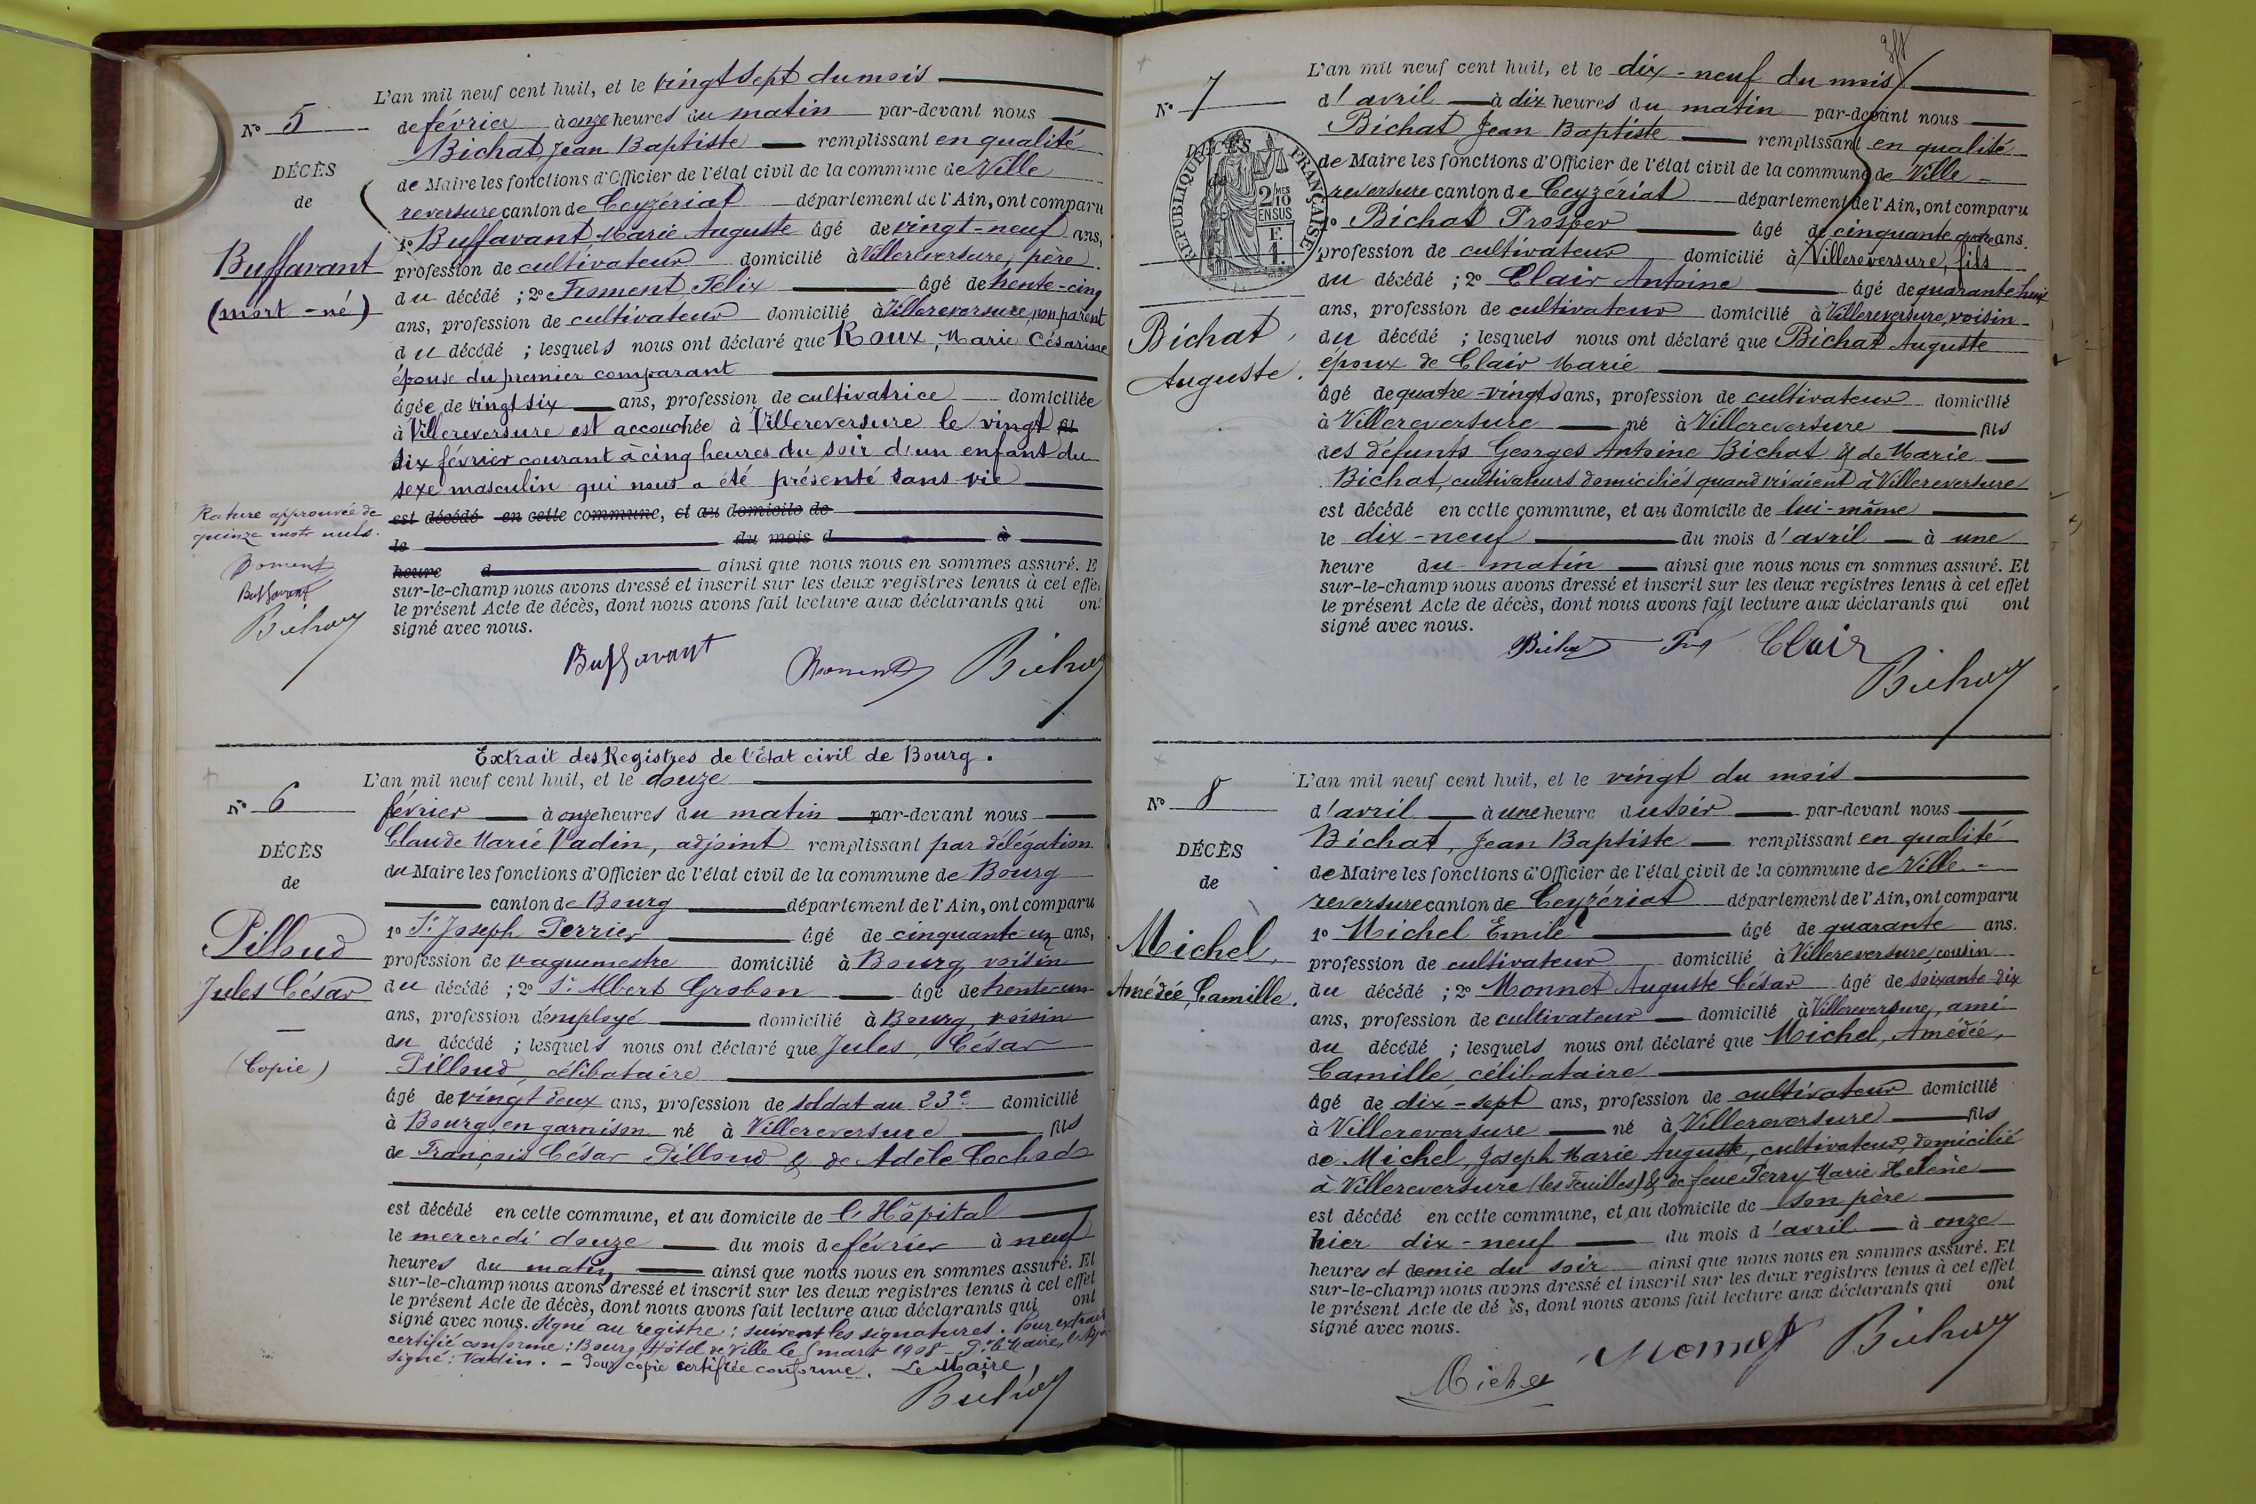 L'an mil neuf cent huit, et le vingt sept du mois
N° 5
de février à onze heures du matin par-devant nous
Bichat, Jean Baptiste remplissant en qualité
DÉCÈS
de Maire les fonctions d'Officier de l'état civil de la commune de Ville
de
reversure canton de Ceyzériat département de l'Ain, ont comparu
1° Buffavant Marie Auguste âgé de vingt-neuf ans,
Buffavant
profession de cultivateur domicilié à Villereversure, père
(mort-né)
du décédé ; 2° Froment Félix âgé de trente-cinq
ans, profession de cultivateur domicilié à Villereversure, non parent
du décédé ; lesquels nous ont déclaré que Roux, Marie Césarine
épouse du premier comparant
âgée de vingt six ans, profession de cultivatrice domiciliée
à Villereversure est accouchée à Villereversure le vingt
six février courant à cinq heures du soir d'un enfant du
sexe masculin qui nous a été présenté sans vie
Rature approuvée de
quinze mots nuls.
est décédé en cette commune, et au domicile de
le du mois d à
heure d ainsi que nous nous en sommes assuré. E
Froment
Buffavant
Bichat
sur-le-champ nous avons dressé et inscrit sur les deux registres tenus à cet effe
le présent Acte de décès, dont nous avons fait lecture aux déclarants qui on
signé avec nous.
Buffavant Froment Bichat
Extrait des Registres de l'État civil de Bourg.
L'an mil neuf cent huit, et le douze
N° 6
février à onze heures du matin par-devant nous
Claude Marie Vadin, adjoint remplissant par délégation
DÉCÈS
du Maire les fonctions d'Officier de l'état civil de la commune de Bourg
de
canton de Bourg département de l'Ain, ont comparu
1° Sr Joseph Perrier âgé de cinquante un ans,
Pilloud
profession de vaguemestre domicilié à Bourg, voisin
Jules César
du décédé ; 2° Sr Albert Grobon âgé de trente-un
ans, profession d'employé domicilié à Bourg, voisin
(Copie)
du décédé ; lesquels nous ont déclaré que Jules, César
Pilloud, célibataire
âgé de vingt deux ans, profession de soldat au 23e domicilié
à Bourg, en garnison né à Villereversure fils
de François César Pilloud & de Adèle Cochod
est décédé en cette commune, et au domicile de l'Hôpital
le mercredi douze du mois de février à neuf
heures du matin ainsi que nous nous en sommes assuré. Et
sur-le-champ nous avons dressé et inscrit sur les deux registres tenus à cet effet
le présent Acte de décès, dont nous avons fait lecture aux déclarants qui ont
signé avec nous. Signé au registre : suivent les signatures. Pour extrait
certifié conforme : Bourg, Hôtel de Ville le mars 1908
Signé : Vadin. - Pour copie certifiée conforme. Le Maire,
Bichat
L'an mil neuf cent huit, et le dix-neuf du mois
N° 7
d'avril à dix heures du matin par-devant nous
Bichat Jean Baptiste remplissant en qualité
RÉPUBLIQUE FRANÇAISE
2/10
EN SUS
de Maire les fonctions d'Officier de l'état civil de la commune de Ville-
reversure canton de Ceyzeriat département de l'Ain, ont comparu
1° Bichat Prosper âgé de cinquante quatre ans.
profession de cultivateur domicilié à Villereversure, fils
du décédé ; 2° Clair Antoine âgé de quarante huit
Bichat,
Auguste.
ans, profession de cultivateur domicilié à Villereversure, voisin
du décédé ; lesquels nous ont déclaré que Bichat Auguste
époux de Clair Marie
âgé de quatre-vingts ans, profession de cultivateur domicilié
à Villereversure né à Villereversure fils
des défunts Georges Antoine Bichat & de Marie
Bichat, cultivateurs domiciliés quand vivaient à Villereversure
est décédé en cette commune, et au domicile de lui-même
le dix-neuf du mois d'avril à une
heure du matin ainsi que nous nous en sommes assuré. Et
sur-le-champ nous avons dressé et inscrit sur les deux registres tenus à cet effet
le présent Acte de décès, dont nous avons fait lecture aux déclarants qui ont
signé avec nous.
Bichat Clair
Bichat
L'an mil neuf cent huit, et le vingt du mois
N° 8
d'avril à une heure du soir par-devant nous
Bichat, Jean Baptiste remplissant en qualité
DÉCÈS
de Maire les fonctions d'Officier de l'état civil de la commune de Ville-
de
reversure canton de Ceyzériat département de l'Ain, ont comparu
1° Michel Emile âgé de quarante ans.
Michel,
profession de cultivateur domicilié à Villereversure, cousin
Amédée, Camille.
du décédé ; 2° Monnet Auguste César âgé de soixante dix
ans, profession de cultivateur domicilié à Villereversure, ami
du décédé ; lesquels nous ont déclaré que Michel, Amédée,
Camille, célibataire
âgé de dix-sept ans, profession de cultivateur domicilié
à Villereversure né à Villereversure fils
de Michel, Joseph Marie Auguste, cultivateur, domicilié
à Villereversure (les Feuilles) & de feue Perry Marie Hélène
est décédé en cette commune, et au domicile de son père
hier dix-neuf du mois d'avril à onze
heures et demie du soir ainsi que nous nous en sommes assuré. Et
sur-le-champ nous avons dressé et inscrit sur les deux registres tenus à cet effet
le présent Acte de dé ès, dont nous avons fait lecture aux déclarants qui ont
signé avec nous.
Michel Monnet Bichat